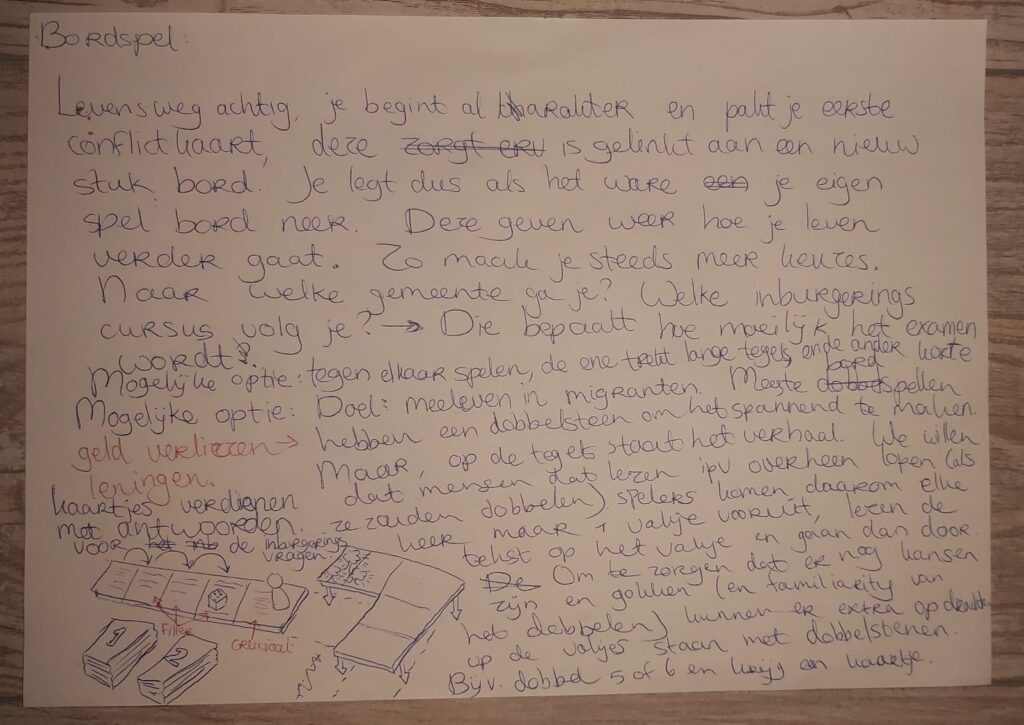 Bordspel:
Levensweg achtig, je begint al karakter en pakt je eerste
conflictkaart, deze zorgt erv is gelinkt aan een nieuw
stuk bord. Je legt dus als het ware een je eigen
spel bord neer. Deze geven weer hoe je leven
verder gaat. Zo maak je steeds meer keuzes.
Naar welke gemeente ga je? Welke inburgerings
cursus volg je? → Die bepaalt hoe moeilijk het examen
wordt?
Mogelijke optie: tegen elkaar spelen, de ene trekt lange tegels en de ander korte
Mogelijke optie: Doel: meeleven in migranten. Meeste bord spellen
geld verliezen → hebben een dobbelsteen om het spannend te maken.
leningen. Maar, op de tegels staat het verhaal. We willen
kaartjes verdienen dat mensen dat lezen ipv overheen lopen (als
met antwoorden. ze zouden dobbelen) spelers komen daarom elke
voor de inburgerings keer maar 1 vakje vooruit, lezen de
vragen. tekst op het vakje en gaan dan door.
De Om te zorgen dat er nog kansen
zijn en gokken (en familiarity van
het debbelen) kunnen er extra opdrachten
op de vakjes staan met dobbelstenen.
Bijv. dobbel 5 of 6 en krijg en kaartje.
Filler
cruciaal
1
2